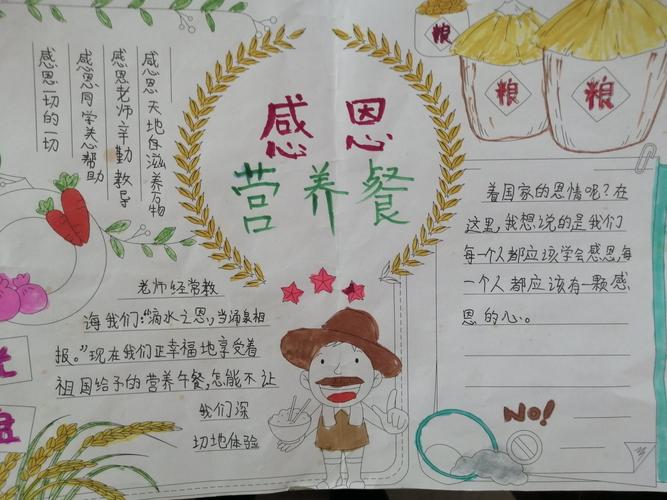 感恩
营养餐
感恩 天地自滋养万物
感恩老师辛勤教导
感恩同学关心帮助
感恩一切的一切
粮
粮
粮
老师经常教
海我们:“滴水之恩,当涌泉相
报。”现在我们正幸福地享受着
祖国给予的营养午餐,怎能不让
我们深
切地体验
着国家的恩情呢?在
这里,我想说的是我们
每一个人都应该学会感恩,每
一个人都应该有一颗感
恩的心。
NO!